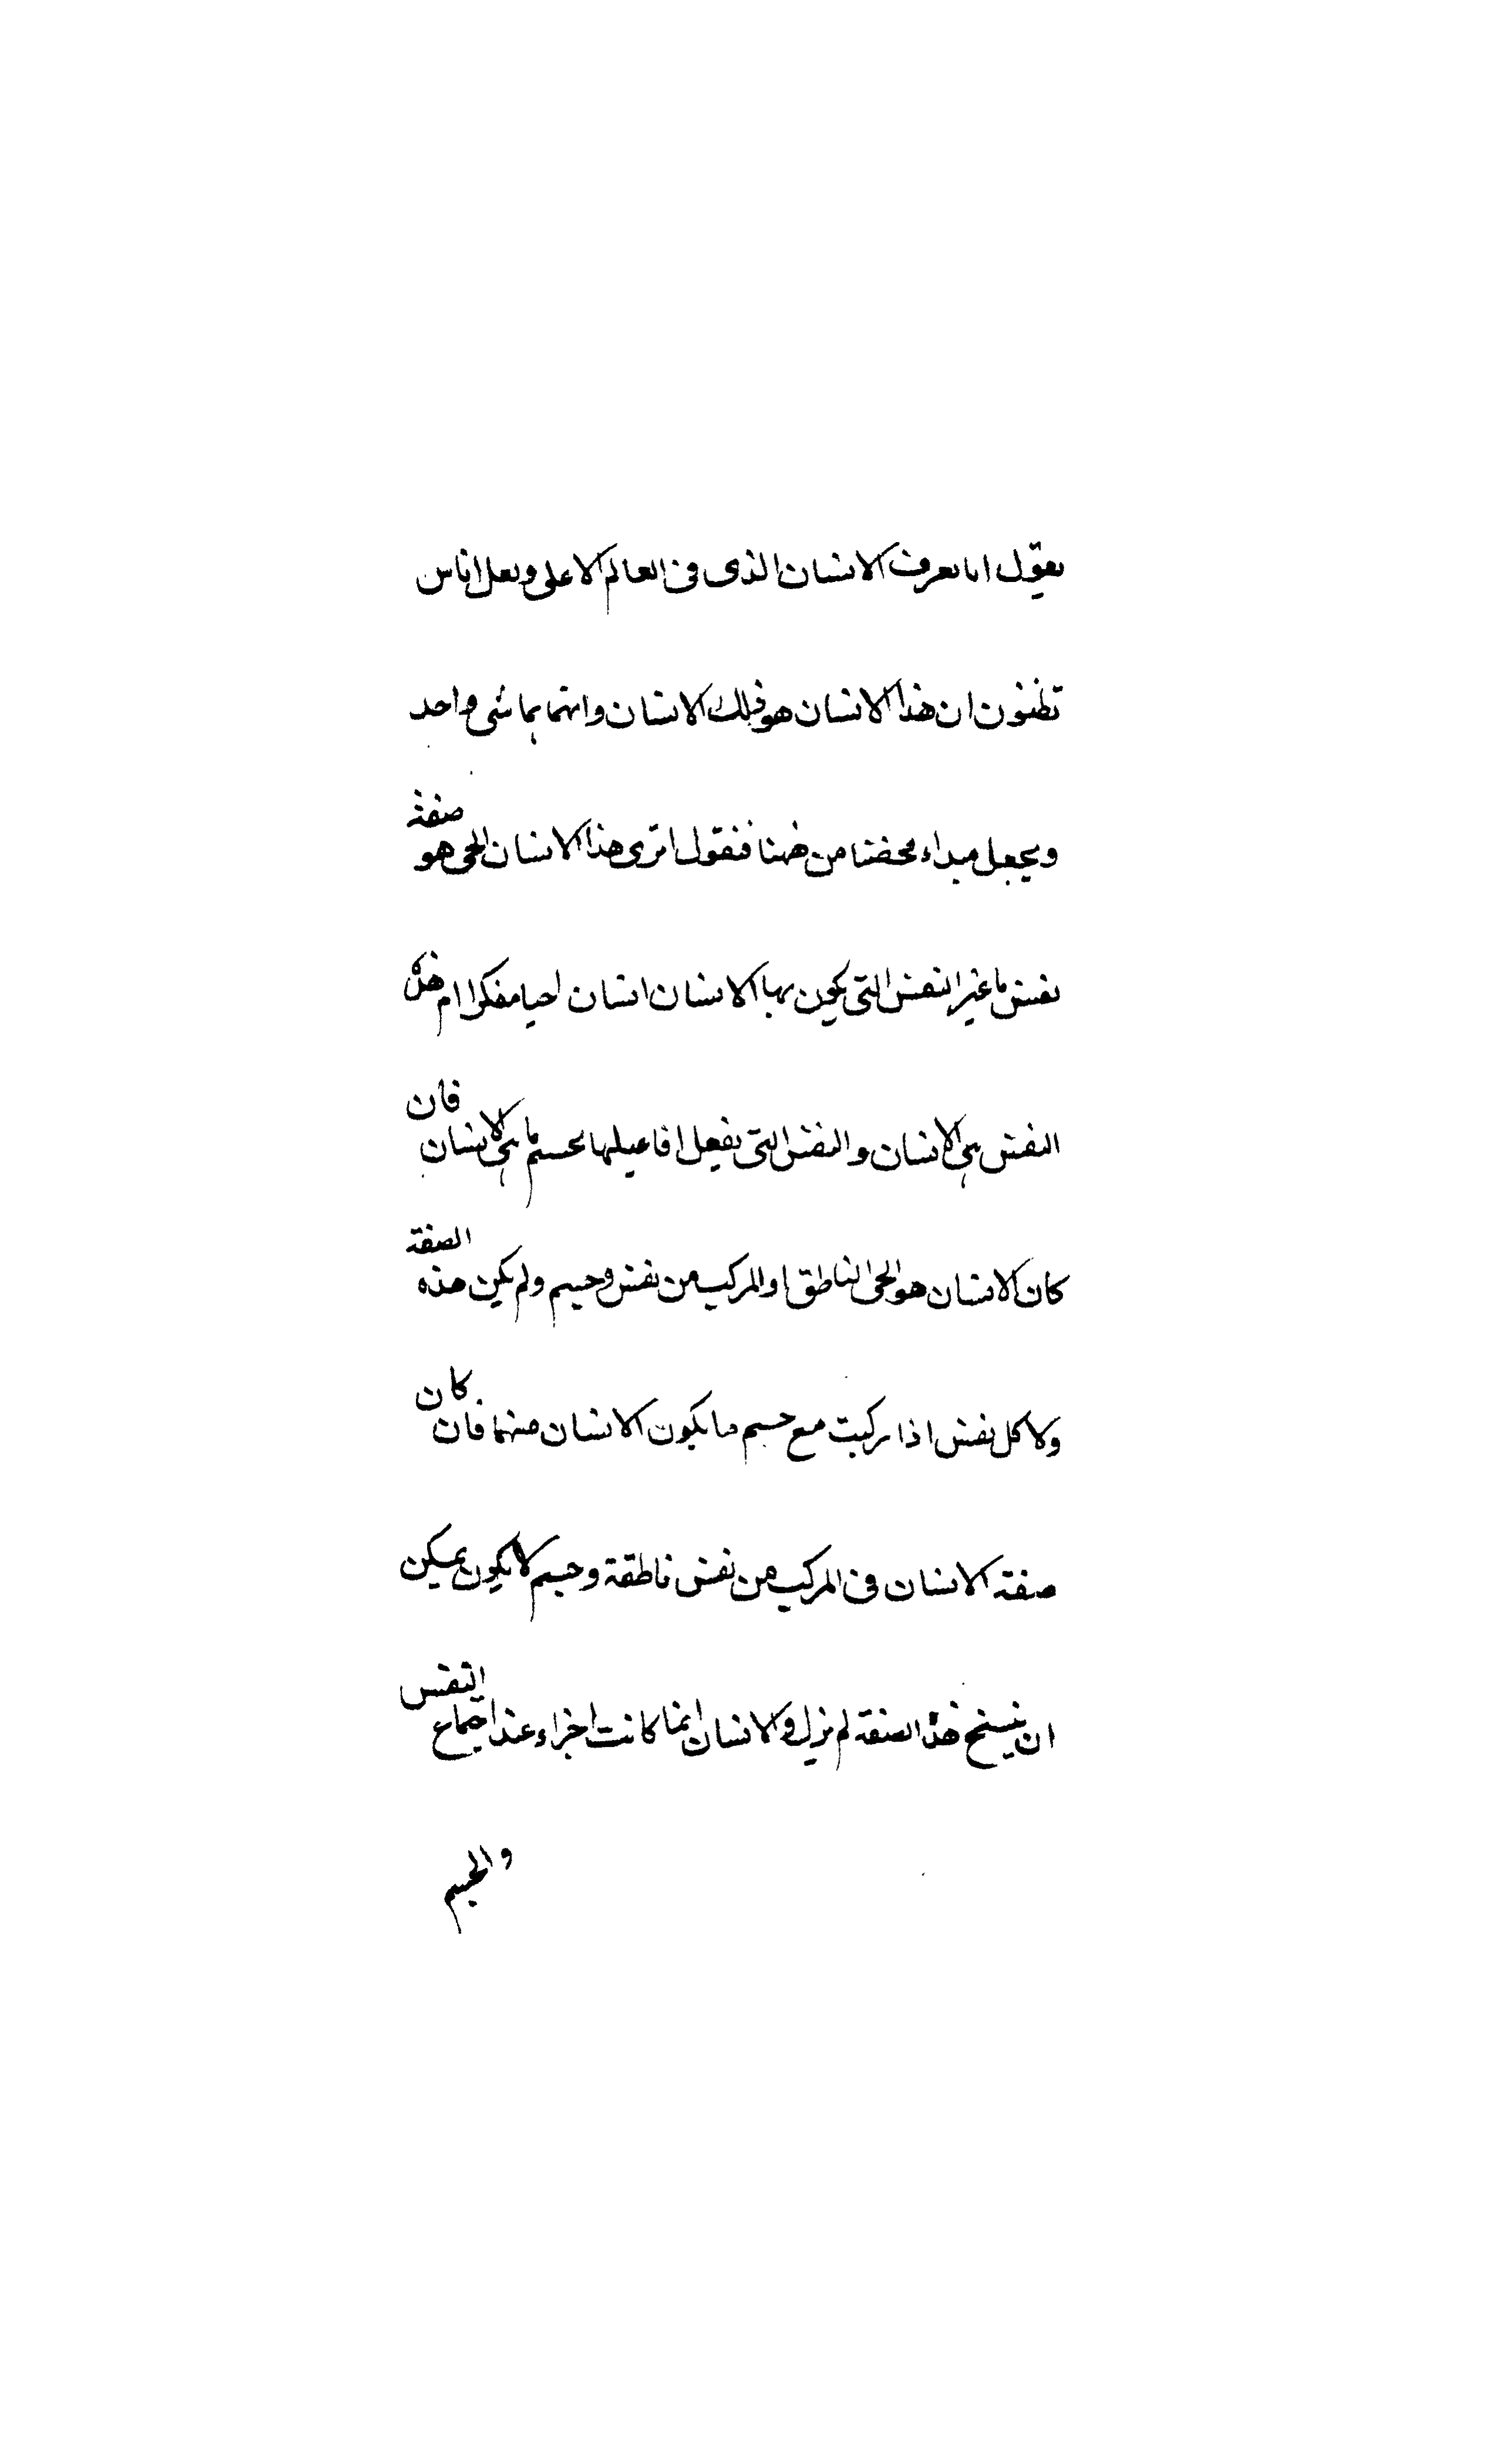 يقول انا نعرف الانسان الذى فى العالم الاعلى ولعل اناس
تظنون ان هذا الانسان هو ذلك الانسان وانهما بما شى واحد
ويجعل مبداء محضنا من ههنا فنقول اترى هذا الانسان الحى هو صفة
نفس ما غير النفس التى يكون بها الانسان انسان احيا مفكرا ام هذه
النفس هى الانسان والنفس التى يفعل افاعيلها بحسم ما هى الانسان فان
كان الانسان هو الحى الناطق او المركب من نفس وجسم ولم يكن هذه الصفة
ولا كل نفس اذا ركبت مع جسم ما يكون الانسان منهما فان كان
صفة الانسان فى المركب من نفس ناطقة وجسم لا يكون يمكن
ان ينسخ هذه الصفة لم نزل والانسان انما كانت اجزاء عند اجتماع النفس
والجسم